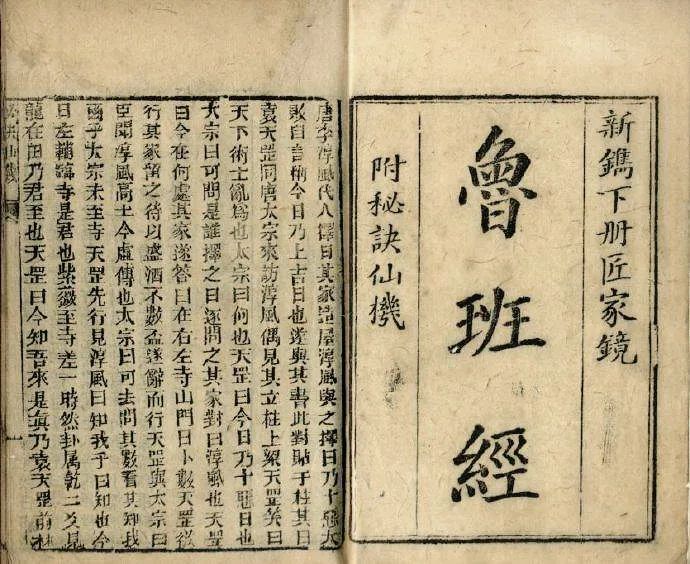 新鐫下册匠家鏡
魯班經
附秘訣仙機
唐李淳風代人擇日其家造屋淳風與之擇日乃十惡大
敗自音稱今日乃上吉日也遂與其書此對貼于柱其日
袁天罡同唐太宗來訪淳風偶見其立柱上梁天罡笑曰
天下術士亂為也太宗曰何也天罡曰今日乃十惡日也
太宗曰可問是誰擇之曰遂問之其家對曰淳風也天罡
曰今在何處其家遂答曰在右左寺山門日卜數天罡
行其家留之待以盛酒不數盃遂辭而行天罡與太宗曰
臣聞淳風高士今虛傳也太宗曰可去問其數看其知我
兩乎太宗未至寺天罡先行見淳風曰知我乎曰知也今
日左輔臨寺是君也紫薇至寺差一時然卦屬乾二爻見
龍在田乃君至也天罡曰今知吾來是真乃袁天罡前